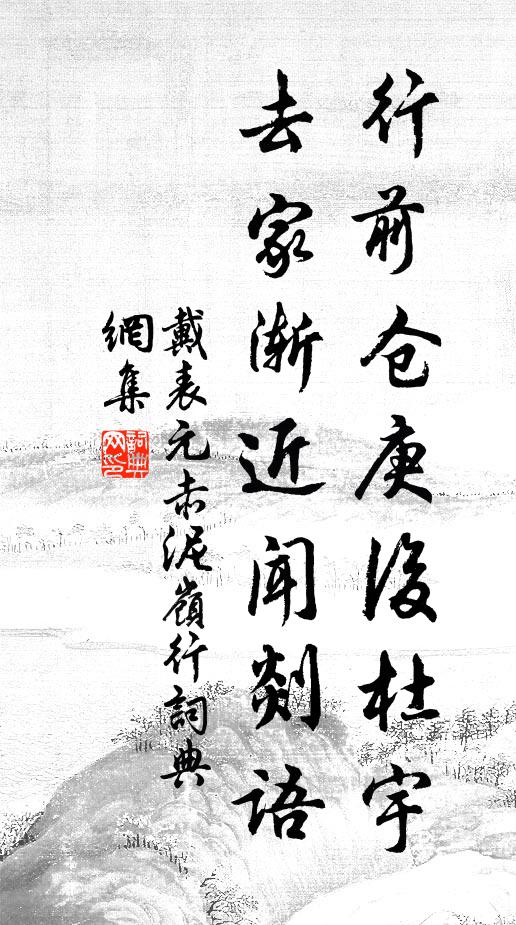 行前仓庚後杜宇
去家渐近闻剡语
戴表元赤泥嶺行詞典
網集
詞典网印